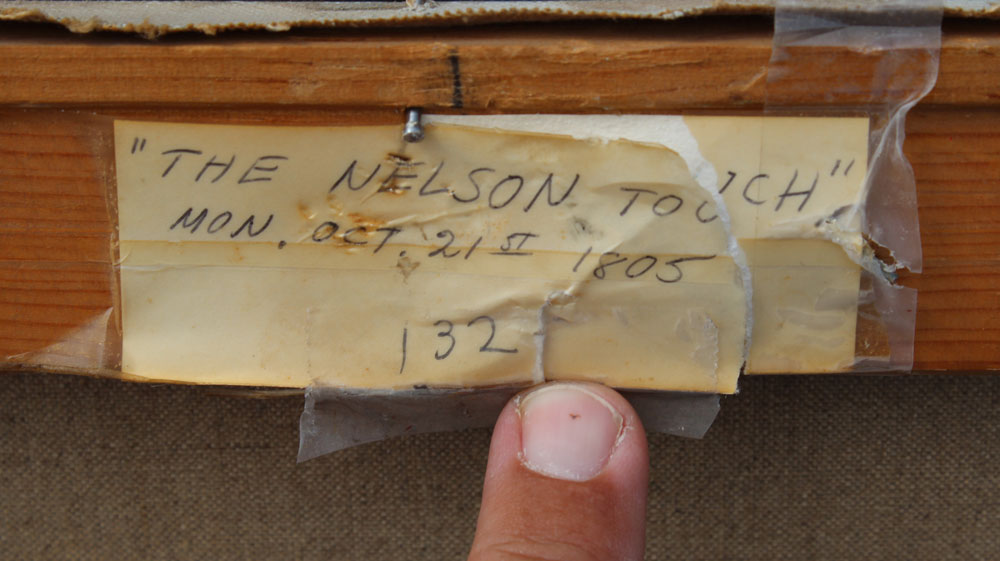 "THE NELSON TOUCH".
MON. OCT. 21ST 1805
132